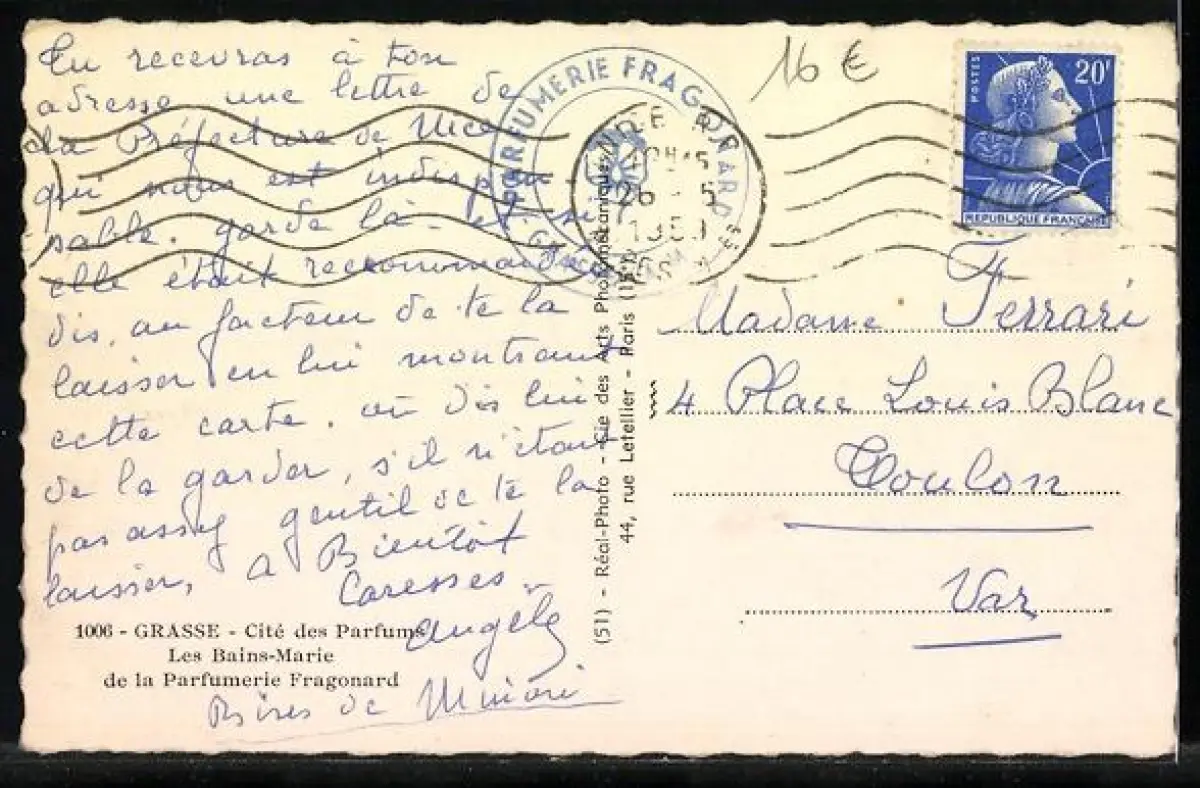 Tu recevras à ton
adresse une lettre de
la Préfecture de Nice
qui nous est indispen
sable. garde la - et si
elle était recommandée
dis, au facteur de te la
laisser en lui montrant
cette carte. ou dis lui
de la garder, s'il n'était
pas assez gentil de te la
laisser, a Bientôt
Caresses.
Angèle
Bises de Minori
1006 - GRASSE - Cité des Parfums
Les Bains-Marie
de la Parfumerie Fragonard
PARFUMERIE FRAGONARD
26 - 5
(51) - Réal-Photo - Cie des Arts Photomécaniques
44, rue Letellier - Paris (15e)
16 €
POSTES
20F
REPUBLIQUE FRANÇAISE
Madame Ferrari
4 Place Louis Blanc
Toulon
Var